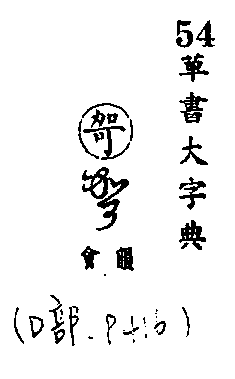 54
草書大字典
哿
哿
韻會
(口部